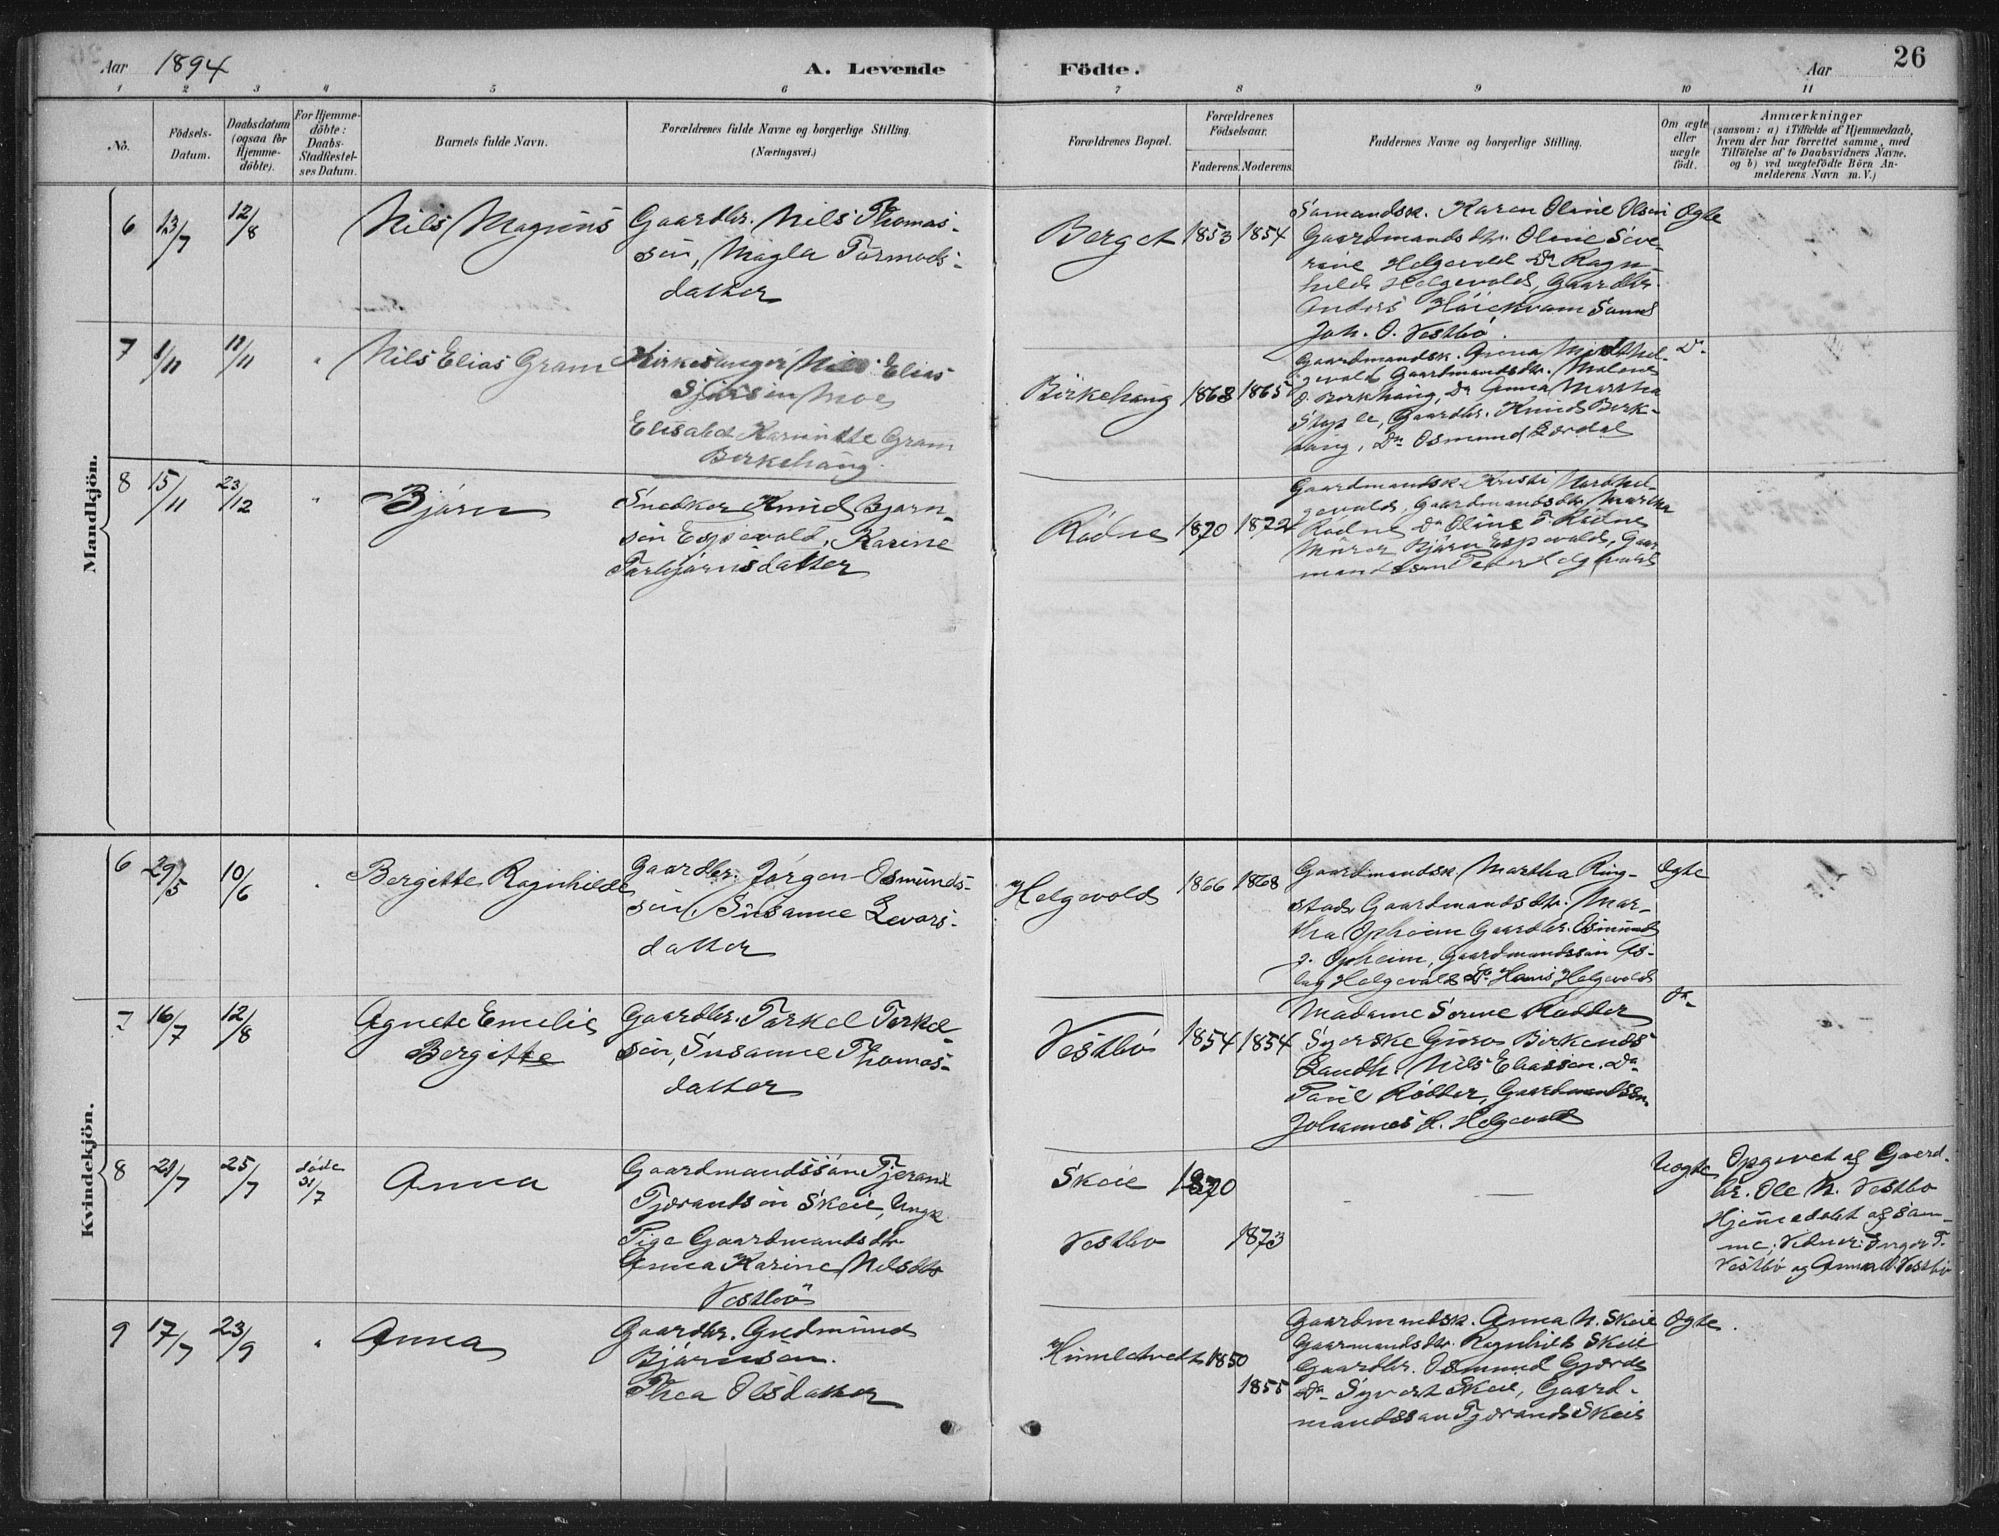 26
Aar 1894 A. Levende Födte. Aar
1 2 3 4 5 6 7 8 9 10 11
No.
Födsels-
Datum.
Daabsdatum
(ogsaa for
Hjemme-
döbte).
For Hjemme-
döbte:
Daabs-
Stadfæstel-
ses Datum.
Barnets fulde Navn.
Forældrenes fulde Navne og borgerlige Stilling.
(Næringsvei.)
Forældrenes Bopæl.
Forældrenes
Födselsaar.
Faderens. Moderens.
Faddernes Navne og borgerlige Stilling.
Om ægte
eller
uægte
født.
Anmærkninger
(saasom: a) i Tilfælde af Hjemmedaab,
hvem der har forrettet samme, med
Tilföielse af to Daabsvidners Navne,
og b) ved uægtefödte Börn An-
melderens Navn m. V.)
Mandkjön.
6 13/7 12/8 Nils Magnus
Gaardbr. Nils Thomas-
sön, Magla Tormods-
datter
Berget 1853 1854
Gaardmandsdtr. Oline Seve-
rine Helgevold Do Ragn-
hilde Helgevold, Gaardbr.
Joh. O. Vestbö
Ægte
7 1/11 11/11 " Nils Elias Gram
Kirkesanger Nils Elias
Sjursen Moe
Elisabet Karinette Gram
Birkehaug.
Birkehaug 1868 1865
Gaardmandsk. Anna
gevold Gaardmandsdtr. Malene
O. Berkhaug, Do Anna Martha
Stople, Gaardbr. Knud Berk-
haug, Do Osmund Lærdal
Do
8 15/11 23/12 " Björn
Snedker Knud Bjørn-
sön Espevold, Karine
Torbjørnsdatter
Rødne 1870 1872
Gaardmandsk. Kristi Narthel-
gevold, Gaardmandsdtr. Martha
Rødne Do Oline T. Rødne
Murer Bjørn Espevold, Gaar
mandssön Peder Helgevold
Kvindekjön.
6 29/5 10/6 " Bergitte Ragnhilde
Gaardbr. Jørgen Osmunds-
sön, Susanne Levors-
datter
Helgevold 1866 1868
Gaardmandsk. Martha Ring-
stad, Gaardmandsdtr. Mar-
tha Opheim Gaardbr. Osmund
J. Opheim, Gaardmandssön As-
lag Helgevold Do Hans Helgevold
Ægte
7 16/7 12/8 Agnete Emilie
Bergitte
Gaardbr. Torkel Torkel-
sön, Susanne Thomas-
datter
Vestbö 1854 1854
Madame Serine Rödder
Syerske Guro Birkenes
Landh. Nils Eliassen. Do
Paul Rödder, Gaardmandssön
Johannes L. Helgevold
Do
8 21/7 25/7 døde
31/7
Anna
Gaardmandssön Tjerand
Tjerandsön Skeie, Ungk.
Pige Gaardmandsdtr.
Anna Karine Nilsdtr
Vestbö
Skeie 1870
Vestbö 1873
— —
Uægte
Opgivet af Gaard-
br. Ole N. Vestbö
Hjemmedøbt af sam-
me; Vidner: Inger T.
Vestbö og Anna N. Vestbö
9 17/7 23/9 " Anna
Gaardbr. Gudmund
Bjørnsen.
Thea Olsdatter
Himeltvedt 1850
1855
Gaardmandsk. Anna N. Skeie
Gaarmandsdtr. Ragnhild Skeie
Gaardbr. Osmund Gjerde
Do Syvert Skeie, Gaard-
mandssøn Tjerand Skeie
Ægte